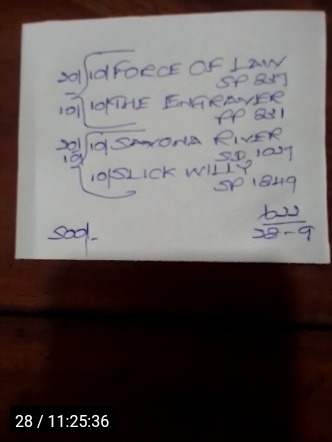 20/ 10/ FORCE OF LAW
SP 837
10/ 10/ THE ENGRAVER
PP 831
20/ 10/ SAVONA RIVER
10/ SD 1027
10/ SLICK WILLY
SP 1849
500/-
28-9
28 / 11:25:36